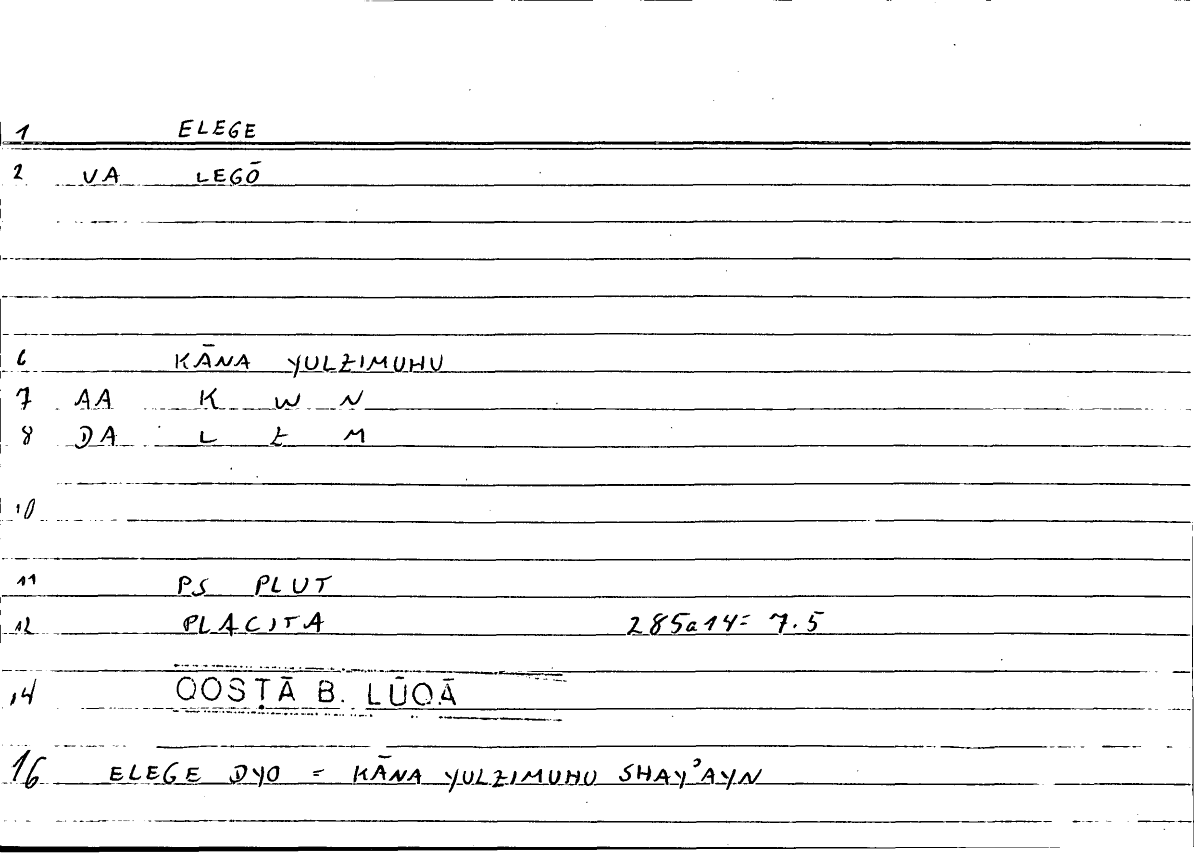 1 ELEGE
2 VA LEGŌ
6 KĀNA YULZIMUHU
7 AA K W N
8 DA L Z M
10
11 PS PLUT
12 PLACITA 285a14= 7.5
14 QOSṬĀ B. LŪQĀ
16 ELEGE DYO = KĀNA YULZIMUHU SHAY'AYN